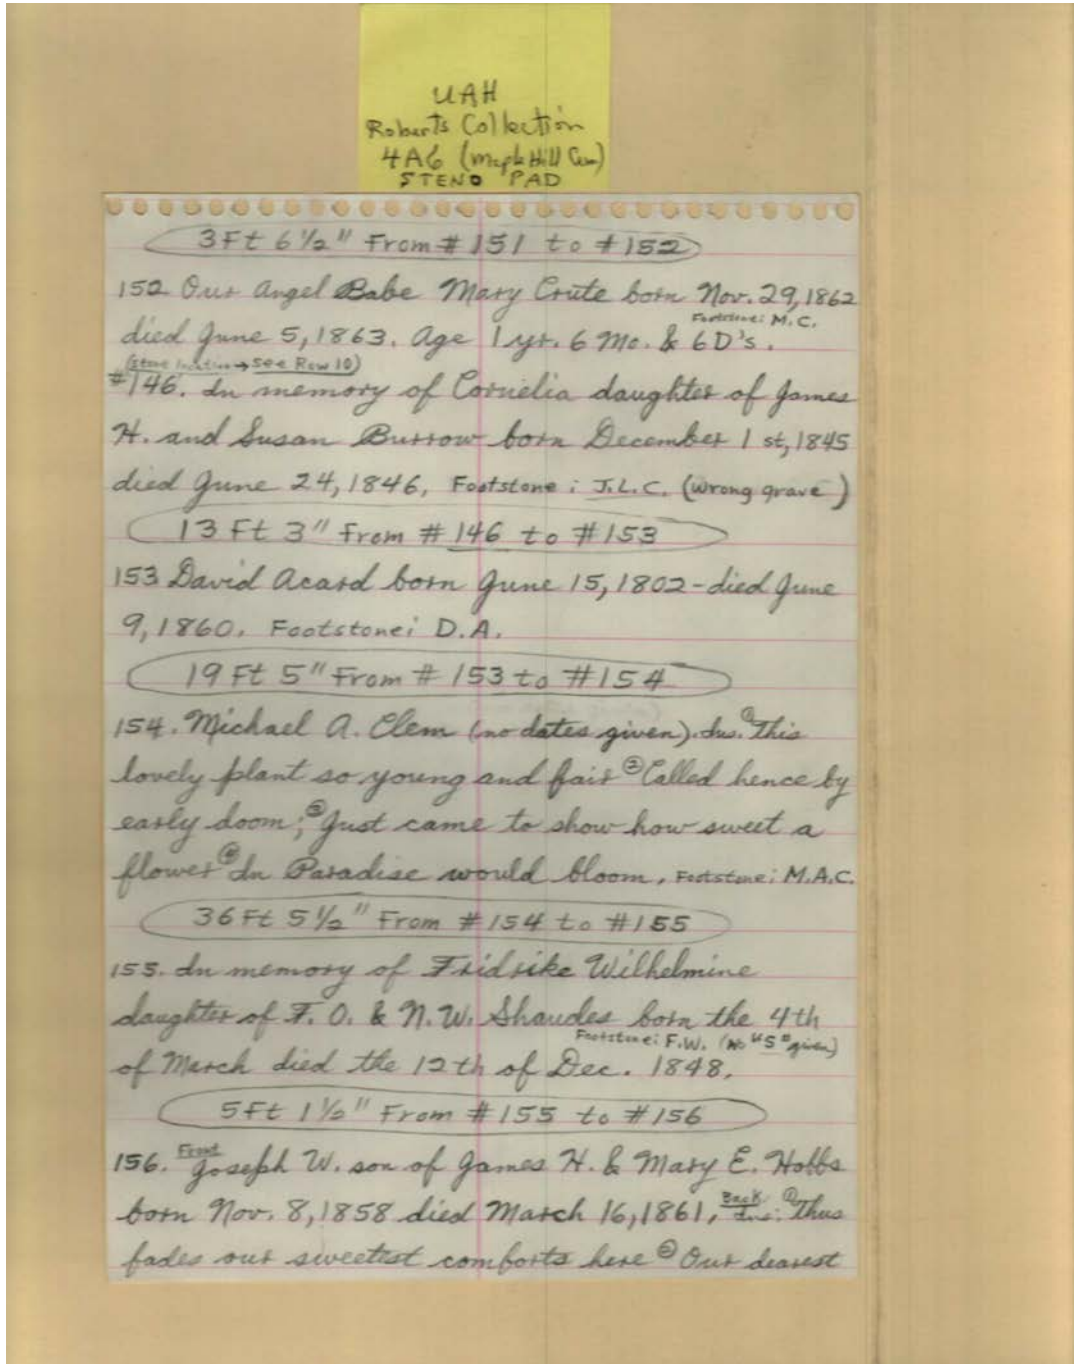 UAH
Roberts Collection
4A6 (Maple Hill Cem)
STENO PAD
3Ft 6½" From #151 to #152
152 Our Angel Babe Mary Crute born Nov. 29, 1862
Footstone: M.C.
died June 5, 1863. Age 1 yr. 6 Mo. & 6 D's.
(stone location → see Row 10)
#146. In memory of Cornelia daughter of James
H. and Susan Burrow born December 1 st, 1845
died June 24, 1846, Footstone: J.L.C. (Wrong grave)
13 Ft 3" From #146 to #153
153 David Acard born June 15, 1802 - died June
9, 1860. Footstone: D.A.
19 Ft 5" From #153 to #154
154. Michael A. Clem (no dates given). Ins. ① This
lovely plant so young and fair ② Called hence by
early doom; ③ Just came to show how sweet a
flower ④ In Paradise would bloom. Footstone: M.A.C.
36 Ft 5½" From #154 to #155
155. In memory of Fridrike Wilhelmine
daughter of F. O. & N. W. Shaudes born the 4th
Footstone: F.W. (No "S" given)
of March died the 12th of Dec. 1848.
5 Ft 1½" From #155 to #156
156. Front Joseph W. son of James H. & Mary E. Hobbs
born Nov. 8, 1858 died March 16, 1861, Back Ins: ① Thus
fades our sweetest comforts here ② Our dearest